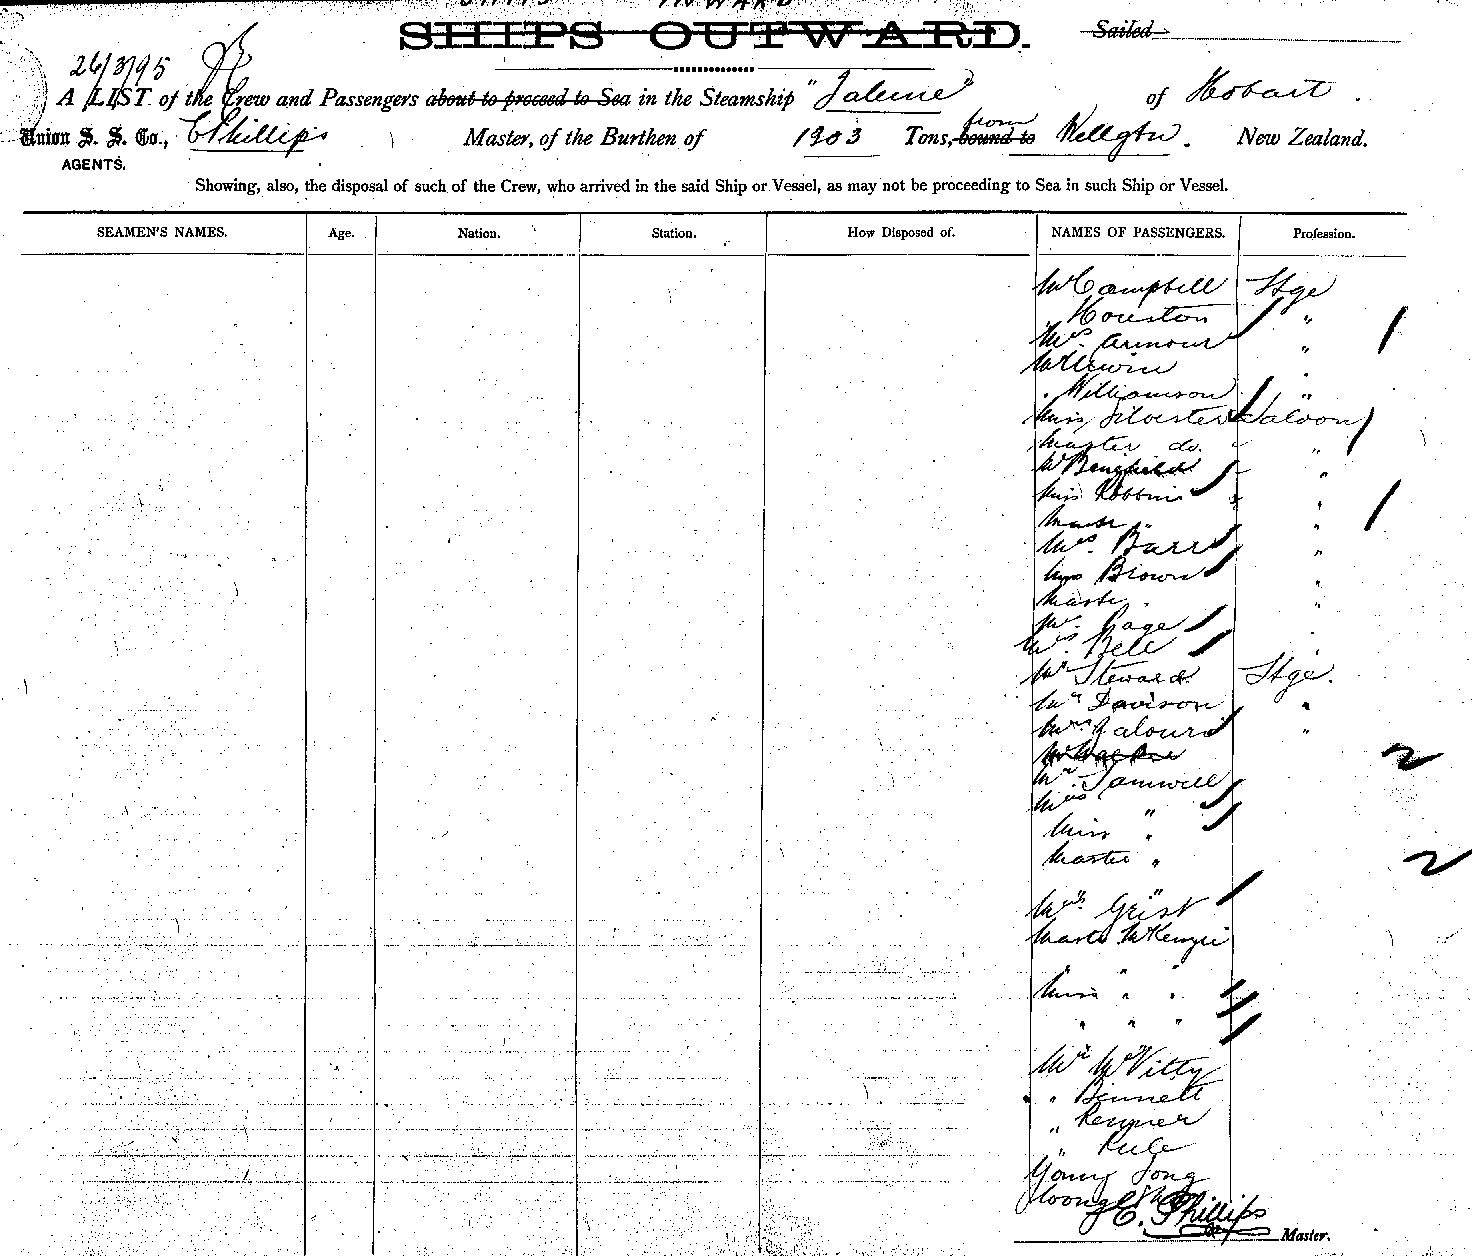 SHIPS INWARD
SHIPS OUTWARD. Sailed
26/3/95
A LIST of the Crew and Passengers about to proceed to Sea in the Steamship "Talune" of Hobart.
Union S. S. Co., C Phillips Master, of the Burthen of 1903 Tons, bound to from Wellgtn. New Zealand.
AGENTS.
Showing, also, the disposal of such of the Crew, who arrived in the said Ship or Vessel, as may not be proceeding to Sea in such Ship or Vessel.
SEAMEN'S NAMES. Age. Nation. Station. How Disposed of. NAMES OF PASSENGERS. Profession.
Mr Campbell Stge
Houston "
Mrs. Armour "
Mr Unwin "
" Williamson "
Miss Silvester Saloon
Master do. "
Mr "
Miss Robbins "
Master " "
Mrs. Barr "
Miss Brown "
Master " "
Mr. Page
Mrs. Bell "
Mr Steward Stge.
Mr Davison "
Mrs "
Mr
Mr Tamwell
Mrs "
Miss "
Master "
" "
Mrs. Geist
Master McKenzie
" " "
Miss " "
" " "
Mr McVitty
" Bennett
" Renner
" Rule
Young Tong
C. Phillips
Master.